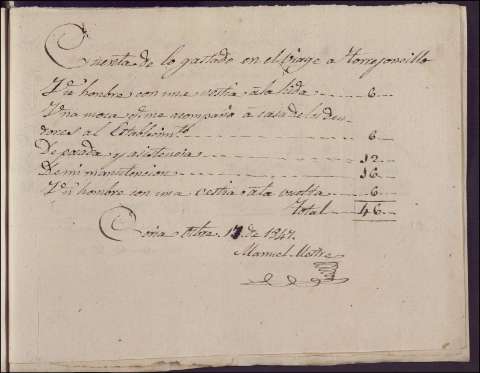 Cuenta de lo gastado en el Viage a Torrejoncillo
Un hombre con una vestia à la hida 6
Una moza q.e me acompaño à casa de los deu-
dores al Establecim.to 6
De posada y asistencia 12
De mi manutencion 16
Un hombre con una vestia à la vuelta 6
Total 46
Coria 17 de 1847.
Manuel Mestre